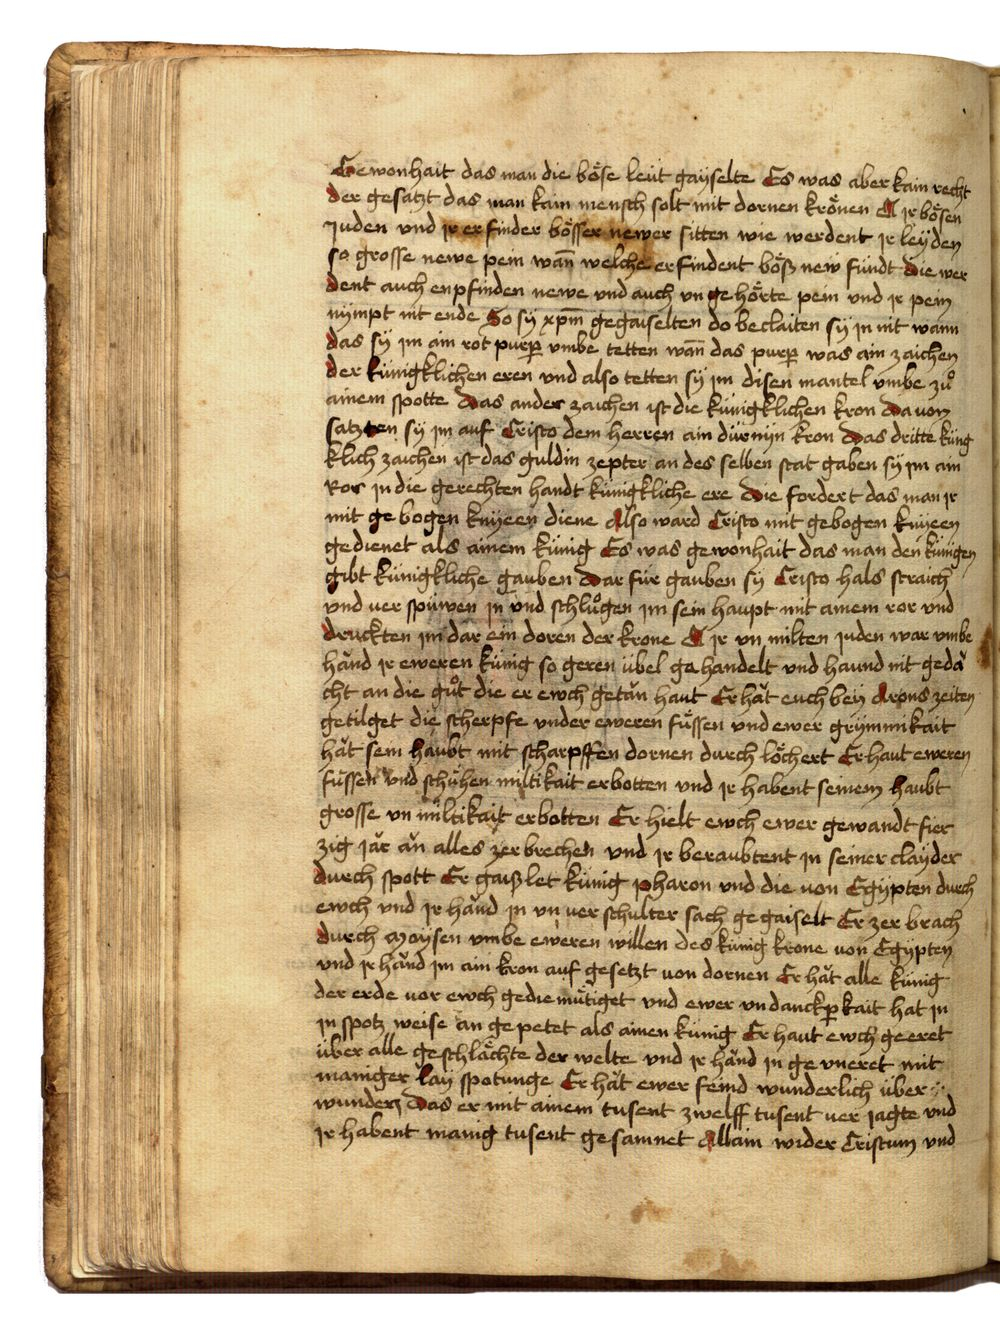 Gewonhait das man die böse leüt gayselte Es was aber kain recht
der gesatzt das man kain mensch solt mit dornen krönen A ir bösen
Juden vnd ir erfinder bösser newer sitten wie werdent ir leyden
so grosse newe pein wañ welche erfindent böß new fündt die wer
dent auch enpfinden newe vnd auch vngehörte pein vnd ir pein
nympt nit ende So sÿ xpm̄ gegaiselten do beclaiten sÿ in nit wann
das sÿ im ain rot purꝑ vmbe tetten wañ das purꝑ was ain zaichen
der künigklichen eren vnd also tetten sÿ im disen mantel vmbe zů
ainem spotte Das ander zaichen ist die künigklichen kron Da von
satzten sÿ im auf Cristo dem herren ain dürnyn kron Das dritte küng
klich zaichen ist das guldin zepter an des selben stat gaben sÿ im ain
Ror in die gerechten handt künigkliche ere Die fordert das man ir
mit gebogen knyeen diene Also ward Cristo mit gebogen knyeen
gedienet als ainem künig Es was gewonhait das man den künigen
gibt künigkliche gauben Dar für gauben sÿ Cristo hals straich
vnd verspüwen in vnd schlůgen im sein haupt mit ainem ror vnd
druckten im dar ein doren der krone A ir vn milten juden war vmbe
händ ir eweren künig so geren übel gehandelt vnd haund nit gedä
cht an die gůt die er ewch getän haut Er hät euch bey Arons zeiten
getilget die scherpfe vnder eweren füssen vnd ewer grymmikait
hät sein haubt mit scharpffen dornen durch löchert Er haut eweren
füssen vnd schühen miltikait erbotten vnd ir habent seinem haubt
grosse vn miltikait erbotten Er hielt ewch ewer gewandt fier
zig jär än alles zerbrechen vnd ir beraubtent in seiner clayder
durch spott Er gaißlet künig pharon vnd die von Egypten durch
ewch vnd ir händ in vn verschulter sach gegaiselt Er zerbrach
durch Moysen vmbe eweren willen des künig krone von Egypten
vnd ir händ im ain kron auf gesetzt von dornen Er hät alle künig
der erde vor ewch gediemütiget vnd ewer vndanckꝑkait hat in
in spotz weise an gepetet als ainen künig Er haut ewch geeret
über alle geschlächte der welte vnd ir händ in gevneret mit
maniger lay spotunge Er hät ewer feind wunderlich über
wunden Das er mit ainem tusent zwelff tusent ver jagte vnd
ir habent manig tusent gesamnet Allain wider Cristum vnd